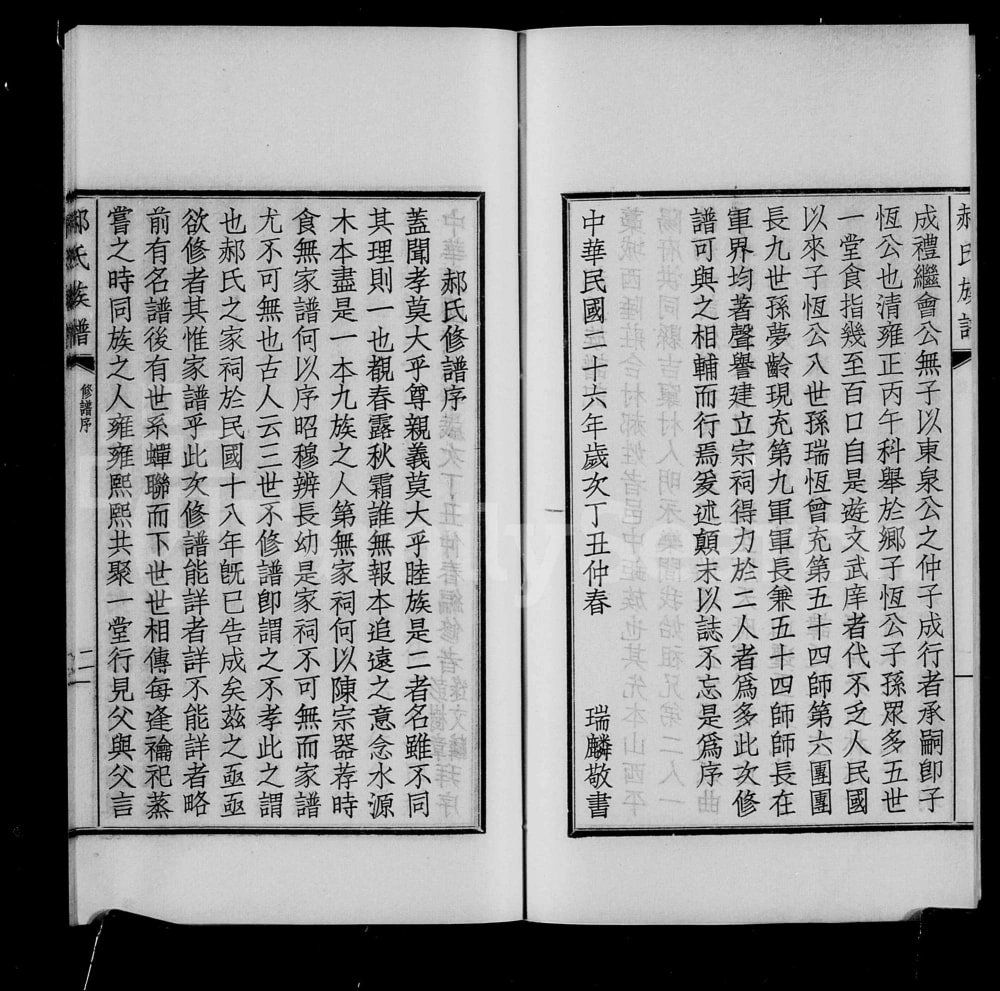 郝氏族譜
成禮繼會公無子以東泉公之仲子成行者承嗣卽子
恆公也清雍正丙午科舉於鄉子恆公子孫眾多五世
一堂食指幾至百口自是遊文武庠者代不乏人民國
以來子恆公八世孫瑞恆曾充第五十四師第六團團
長九世孫夢齡現充第九軍軍長兼五十四師師長在
軍界均著聲譽建立宗祠得力於二人者爲多此次修
譜可與之相輔而行焉爰述顛末以誌不忘是爲序
中華民國二十六年歲次丁丑仲春 瑞麟敬書
郝氏修譜序
蓋聞孝莫大乎尊親義莫大乎睦族是二者名雖不同
其理則一也觀春露秋霜誰無報本追遠之意念水源
木本盡是一本九族之人第無家祠何以陳宗器荐時
食無家譜何以序昭穆辨長幼是家祠不可無而家譜
尤不可無也古人云三世不修譜卽謂之不孝此之謂
也郝氏之家祠於民國十八年旣已告成矣茲之亟亟
欲修者其惟家譜乎此次修譜能詳者詳不能詳者略
前有名譜後有世系蟬聯而下世世相傳每逢禴祀蒸
嘗之時同族之人雍雍熙熙共聚一堂行見父與父言
郝氏族譜
修譜序
二